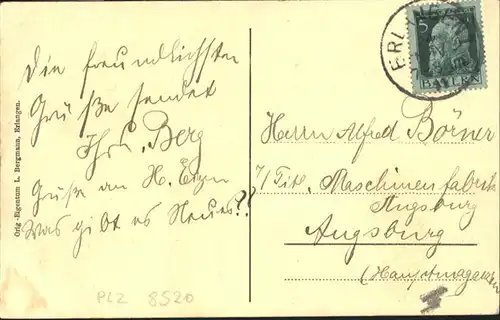 Die freundlichsten
Grüße sendet
Ihr L. Berg
Grüße an H. Eigen
Was gibt es Neues??
Orig.-Eigentum L. Bergmann, Erlangen.
5
BAYERN
ERLANGEN
Herrn Alfred Börner
Maschinenfabrik
Augsburg
Augsburg
(Hauptmagazin)
PLZ 8520